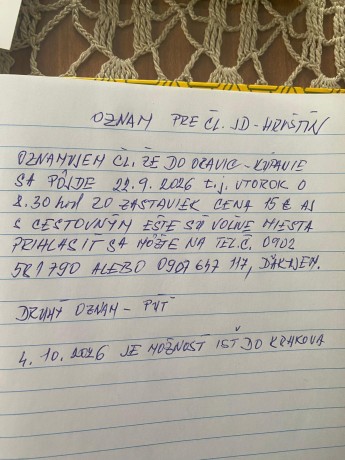 OZNAM PRE ČL. JD-HRUŠTÍN
OZNAMUJEM ČL. ŽE DO ORAVIC-KÚPANIE
SA PÔJDE 22.9.2026 t.j. UTOROK O
8.30 hod ZO ZASTÁVIEK CENA 15 € AJ
S CESTOVNÝM EŠTE SÚ VOĽNÉ MIESTA
PRIHLÁSIŤ SA MÔŽTE NA TEL.Č. 0902
581 790 ALEBO 0907 647 117, ĎAKUJEM.
DRUHÝ OZNAM - PÚŤ
4.10.2026 JE MOŽNOSŤ ÍSŤ DO KRAKOVA